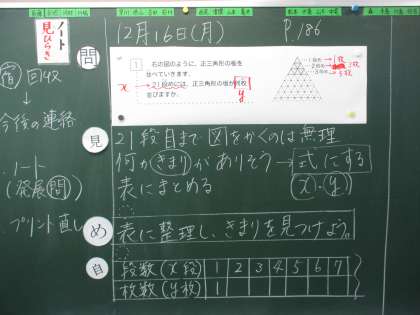 12月16日(月)
P.186
ノート
見ひらき
問
1 右の図のように、正三角形の板を
並べていきます。
21段めには、正三角形の板が何枚
並びますか。
x
y
宿 回収
↓
今後の連絡
・ノート
(発展問)
・プリント直し
見
21段目まで図をかくのは無理
何かきまりがありそう→式にする
表にまとめる
(x)・(y)
め
表に整理し、きまりを見つけよう。
自
段数(x段) 1 2 3 4 5 6 7
枚数(y枚) 1